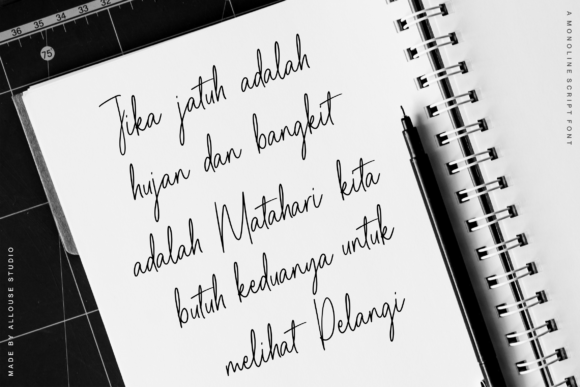 36 35 34 33 32
75
Jika jatuh adalah
hujan dan bangkit
adalah Matahari kita
butuh keduanya untuk
melihat Pelangi
MADE BY ALLOUSE STUDIO
A MONOLINE SCRIPT FONT